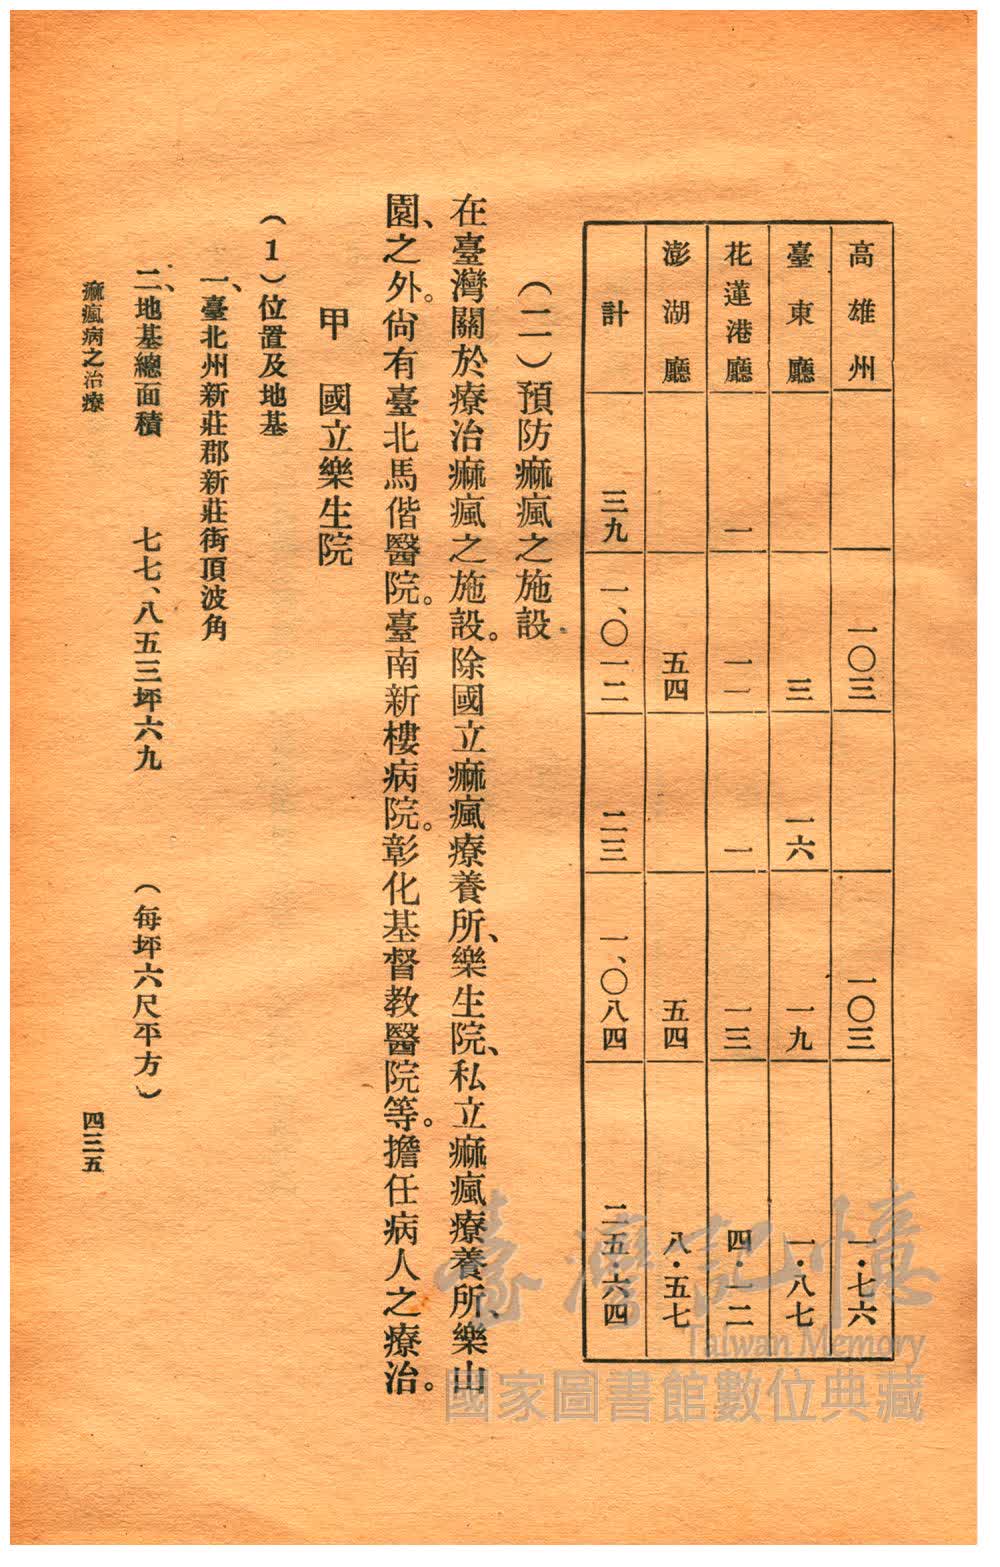 高雄州 一〇三 一〇三 一・七六
臺東廳 三 一六 一九 一・八七
花蓮港廳 一 一一 一 一三 四・一二
澎湖廳 五四 五四 八・五七
計 三九 一、〇一二 二三 一、〇八四 二五・六四
（二）預防痲瘋之施設
在臺灣關於療治痲瘋之施設。除國立痲瘋療養所、樂生院、私立痲瘋療養所、樂山
園、之外。尙有臺北馬偕醫院。臺南新樓病院。彰化基督教醫院等。擔任病人之療治。
甲 國立樂生院
（1）位置及地基
一、臺北州新莊郡新莊街頂波角
二、地基總面積 七七、八五三坪六九 （每坪六尺平方）
痲瘋病之治療 四三五
臺灣記憶
Taiwan Memory
國家圖書館數位典藏